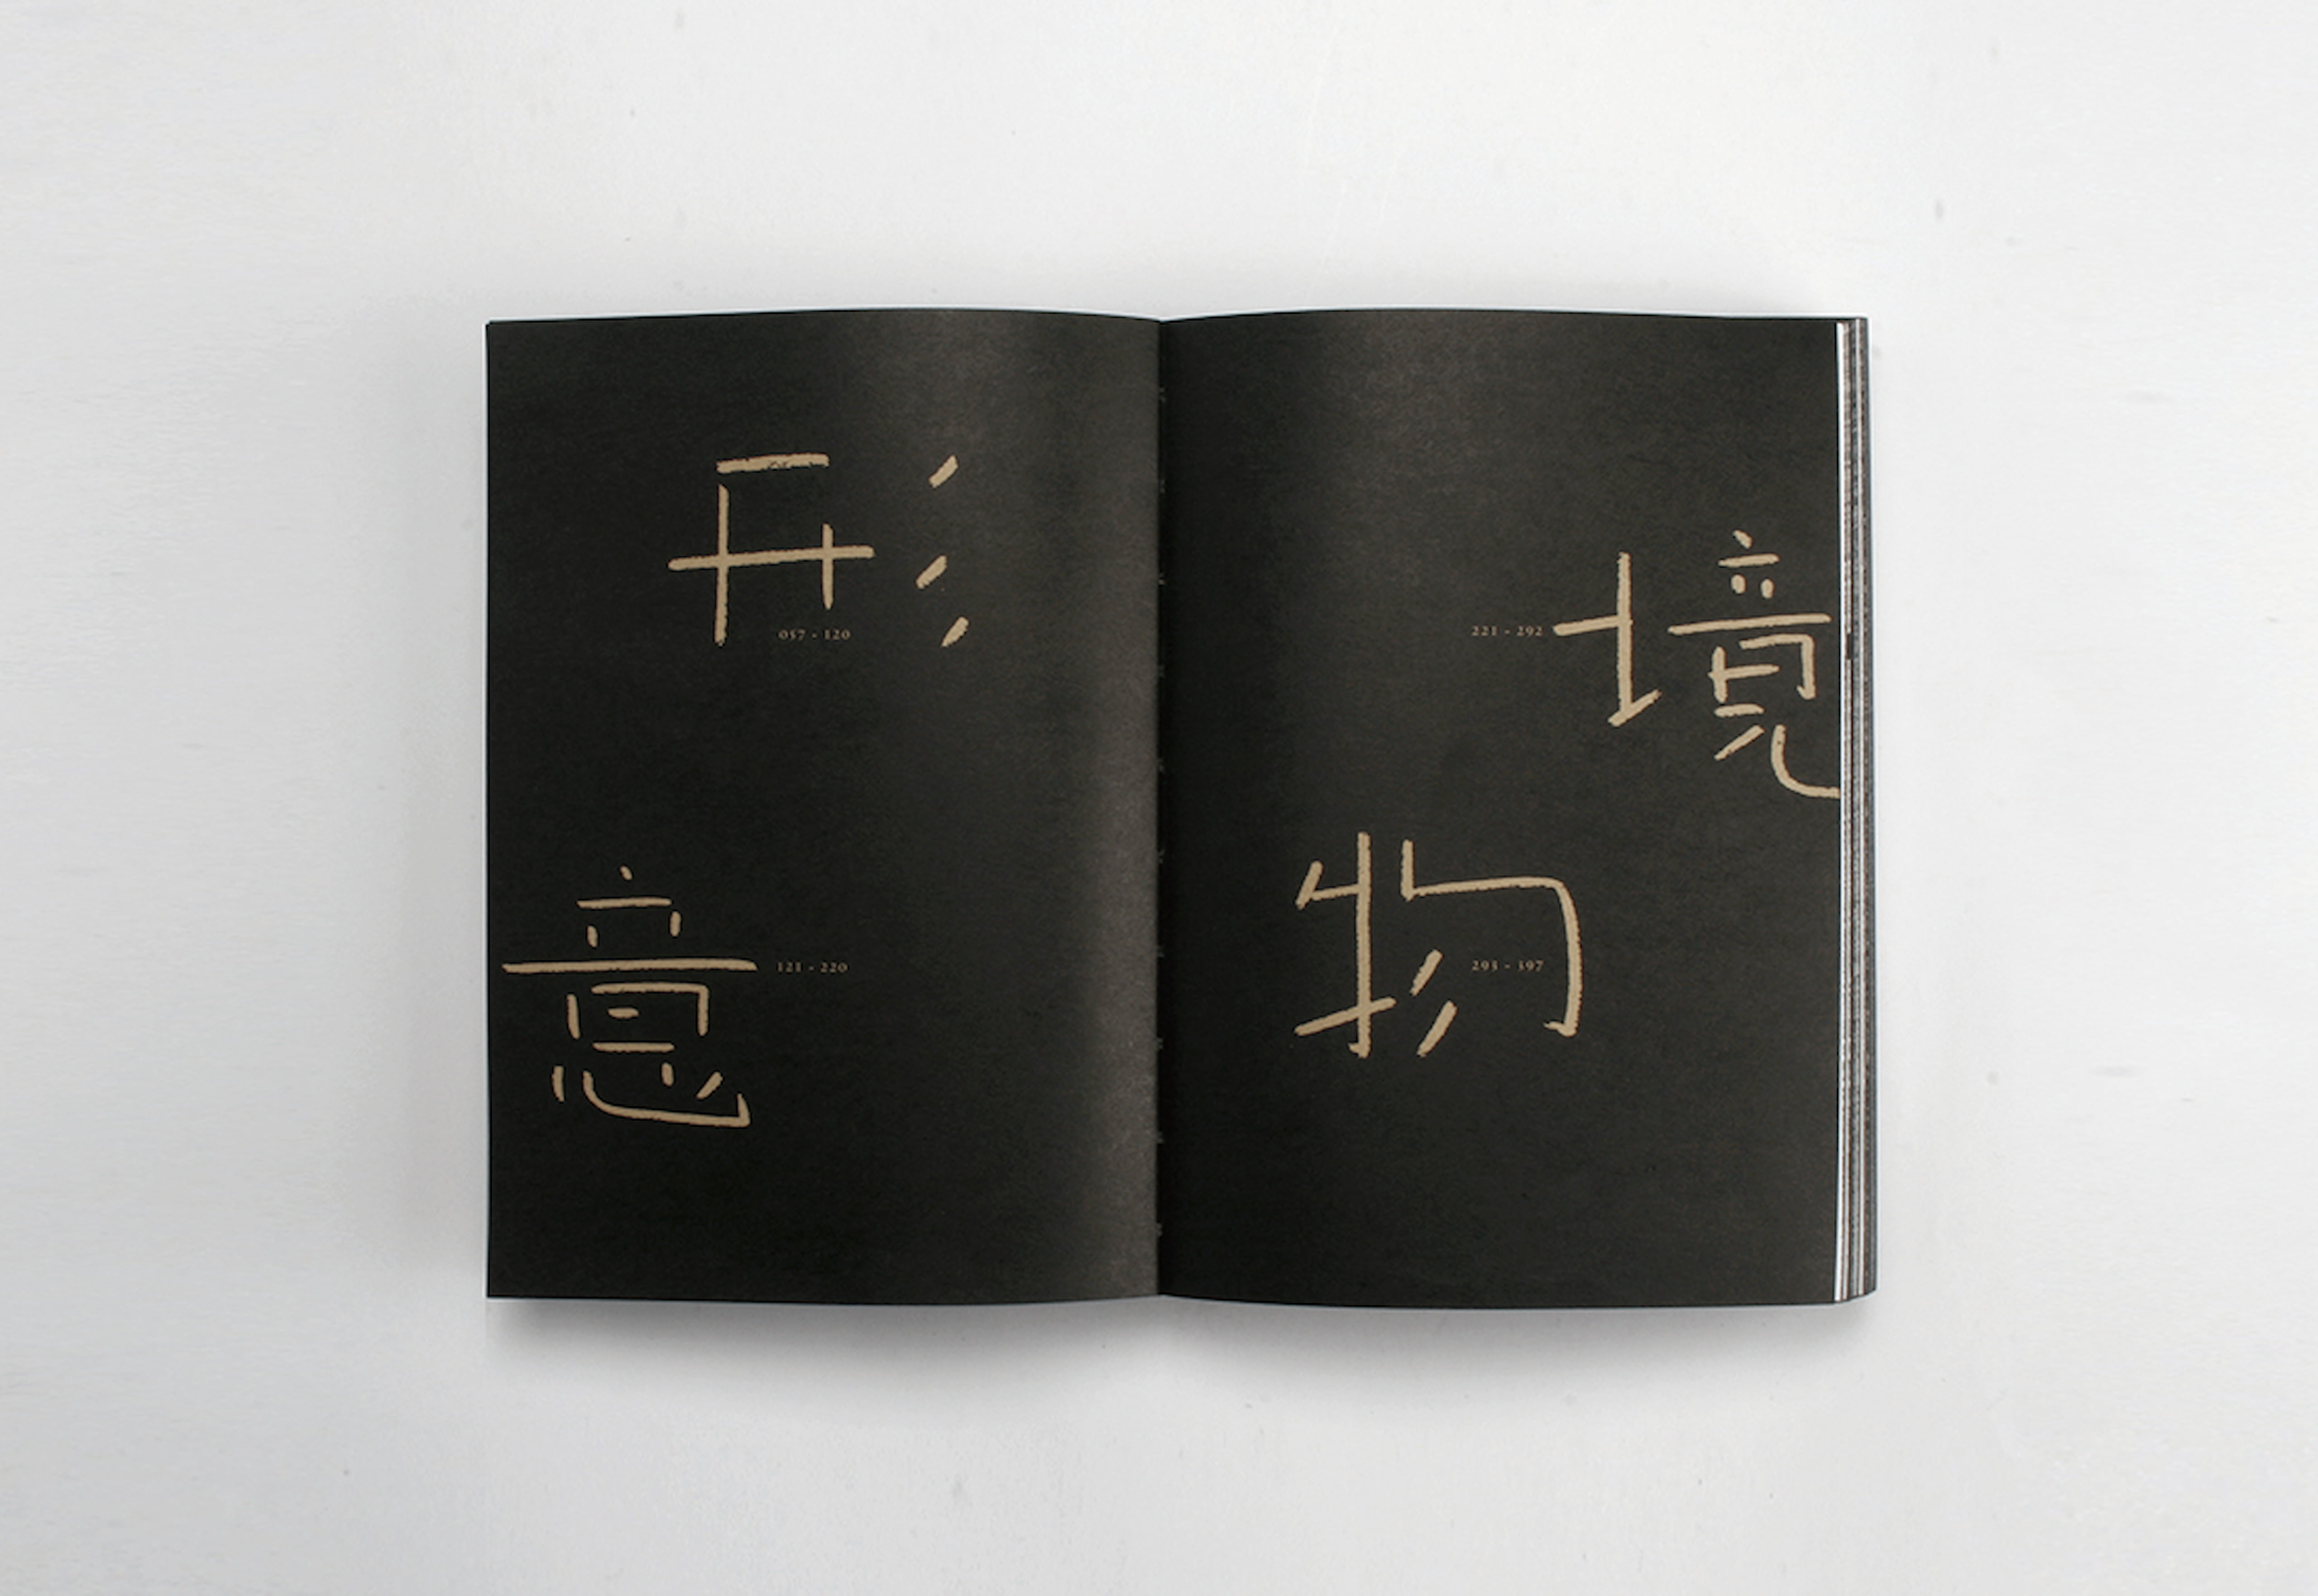 形
057 - 120
意
121 - 220
境
221 - 292
物
293 - 397